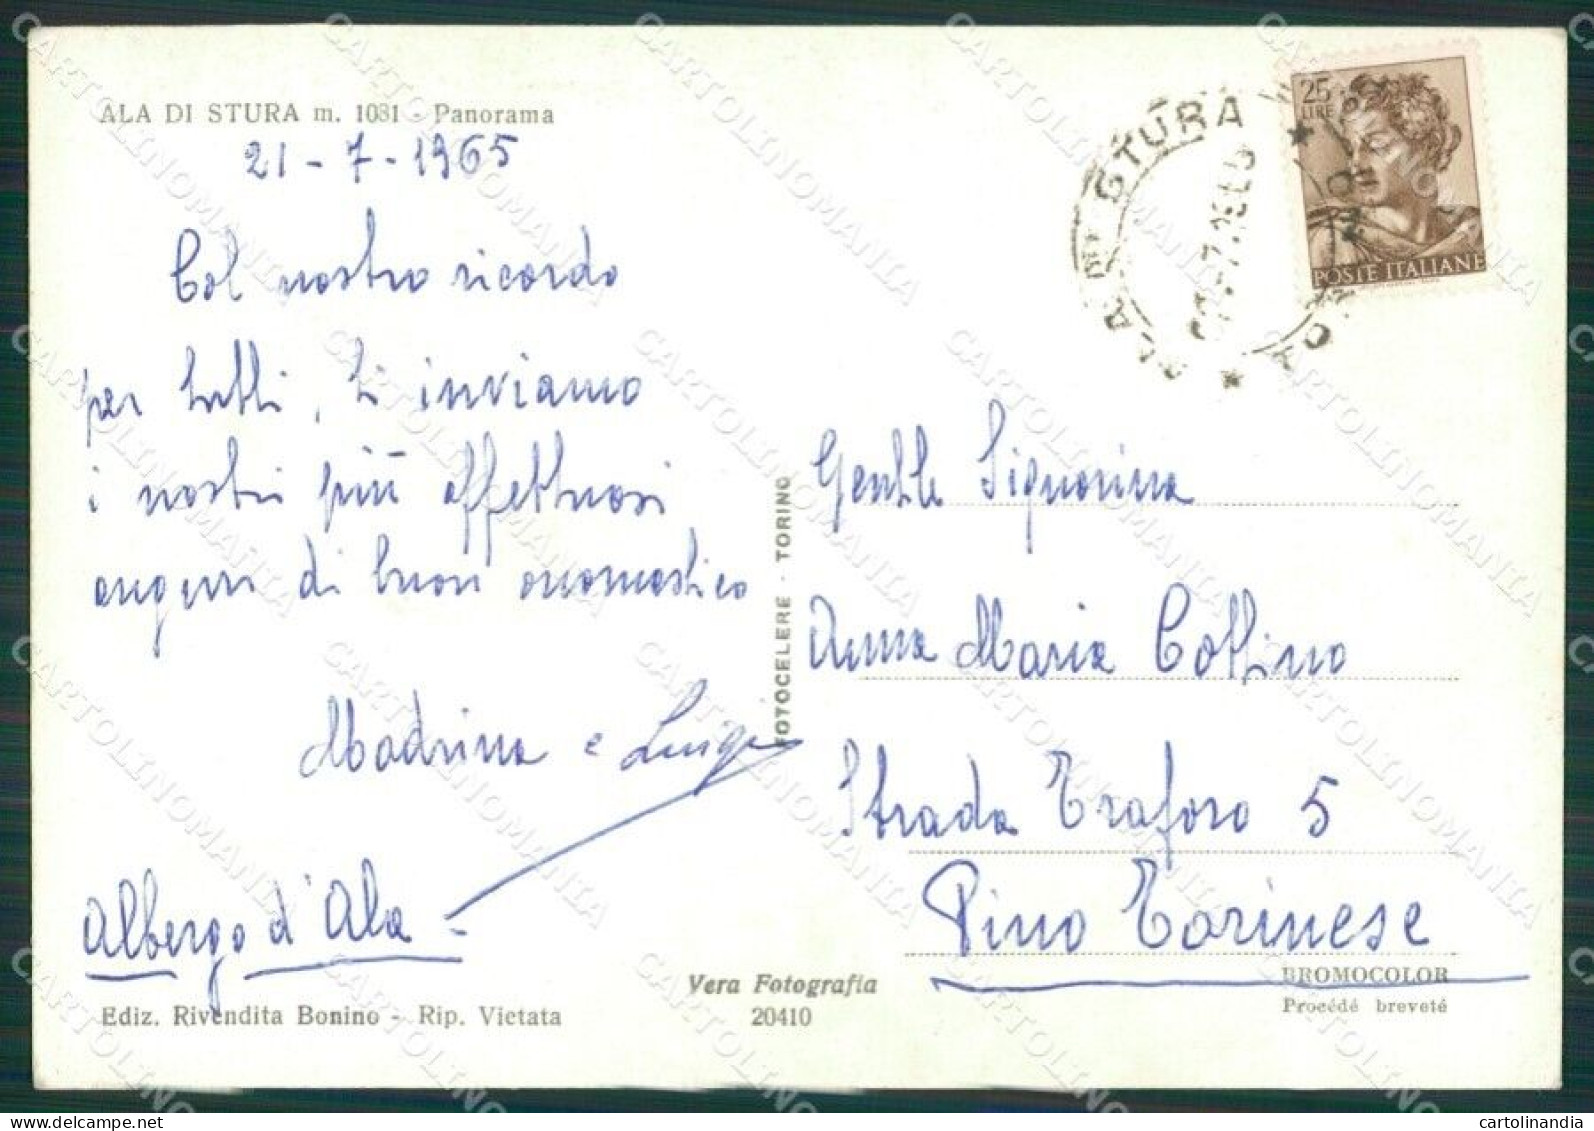 ALA DI STURA m. 1081 - Panorama
21-7-1965
Col nostro ricordo
per tutti, ti inviamo
i nostri più affettuosi
auguri di buon onomastico
Madrina e Luigi
Albergo d'Ala -
Ediz. Rivendita Bonino - Rip. Vietata
Vera Fotografia
20410
FOTOCELERE - TORINO
ALA DI STURA
TORINO
25
LIRE
POSTE ITALIANE
Gentile Signorina
Anna Maria Collino
Strada Traforo 5
Pino Torinese
BROMOCOLOR
Procédé breveté
CARTOLINOMANIA
cartolinandia